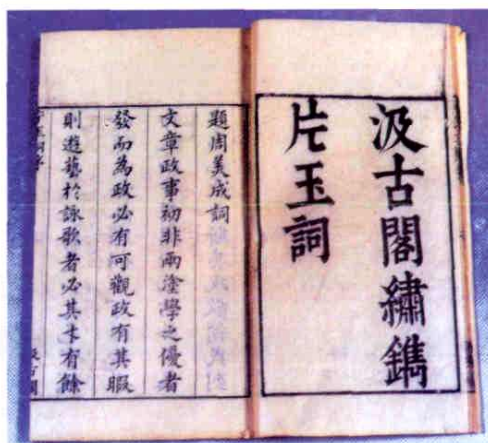 汲古閣繡鐫
片玉詞
題周美成詞
文章政事初非兩塗學之優者
發而為政必有可觀政有其暇
則遊藝於詠歌者必其才有餘